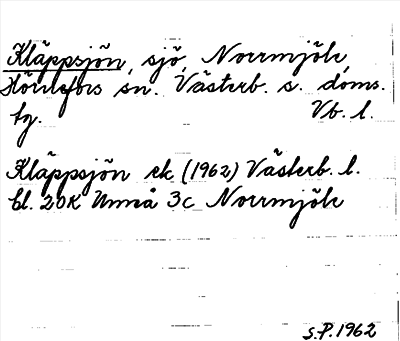 Kläppsjön, sjö, Norrmjöle,
Hörnefors sn. Västerb. s. doms.
tg. Vb. l.
Kläppsjön ek (1962) Västerb. l.
bl. 20K Umeå 3c Norrmjöle
S.P. 1962